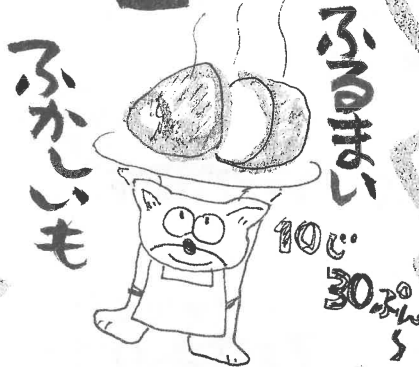 ふるまい
ふかしいも
10じ
30ぷん〜